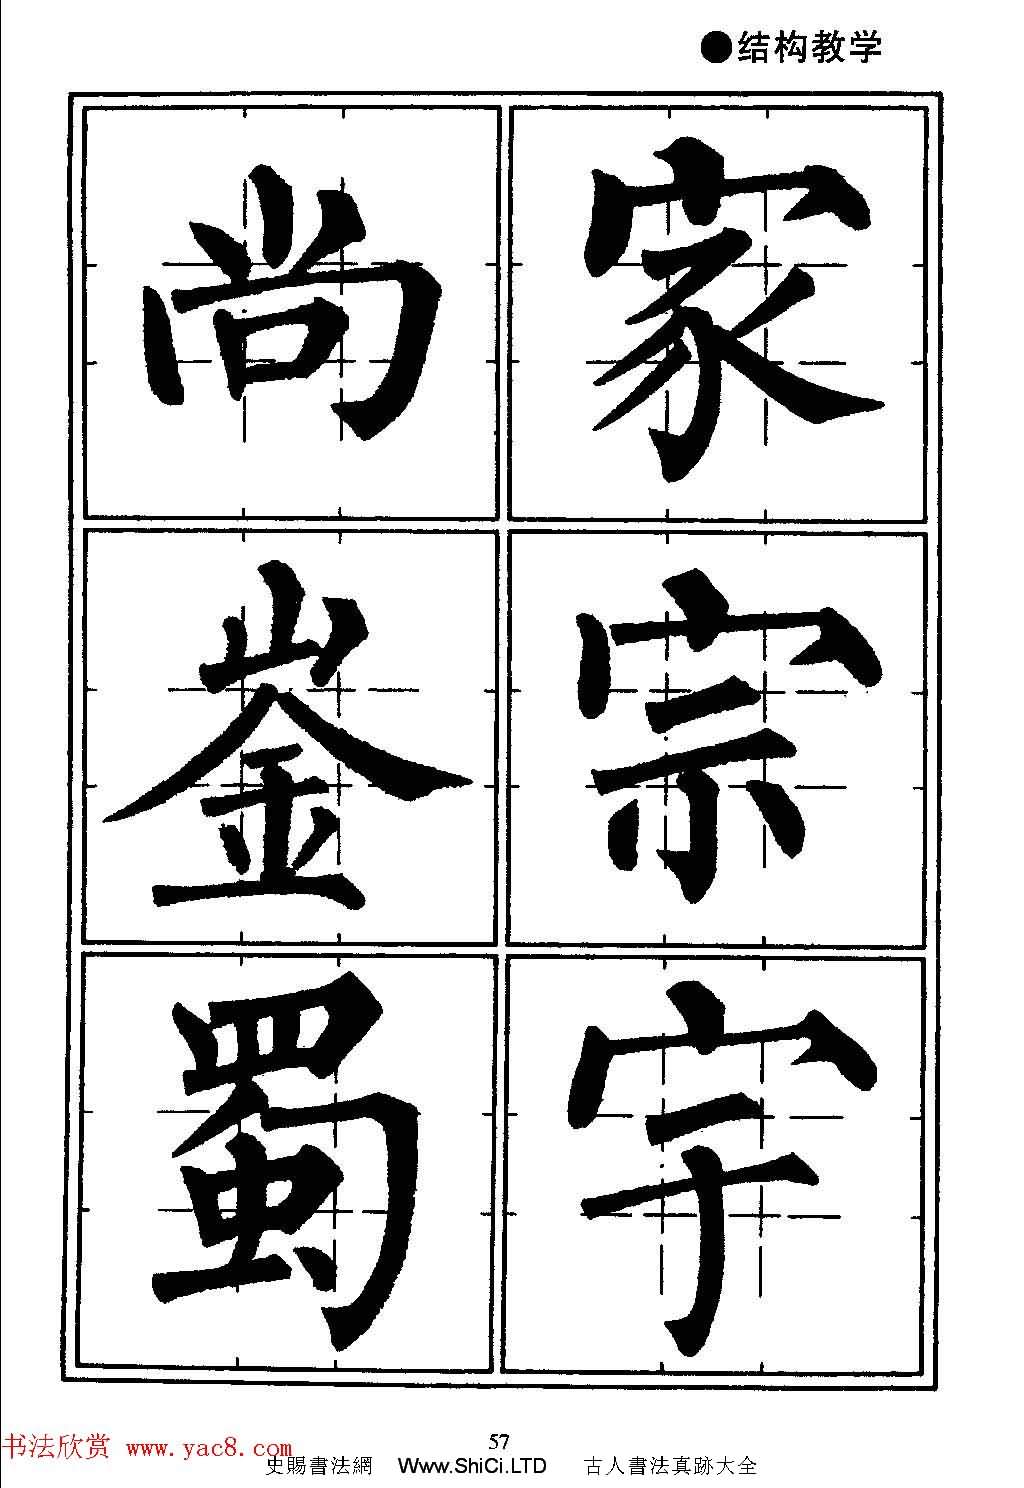 ●结构教学
家
宗
宇
尚
崟
蜀
57
书法欣赏 www.yac8.com
史賜書法網 Www.ShiCi.LTD 古人書法真跡大全